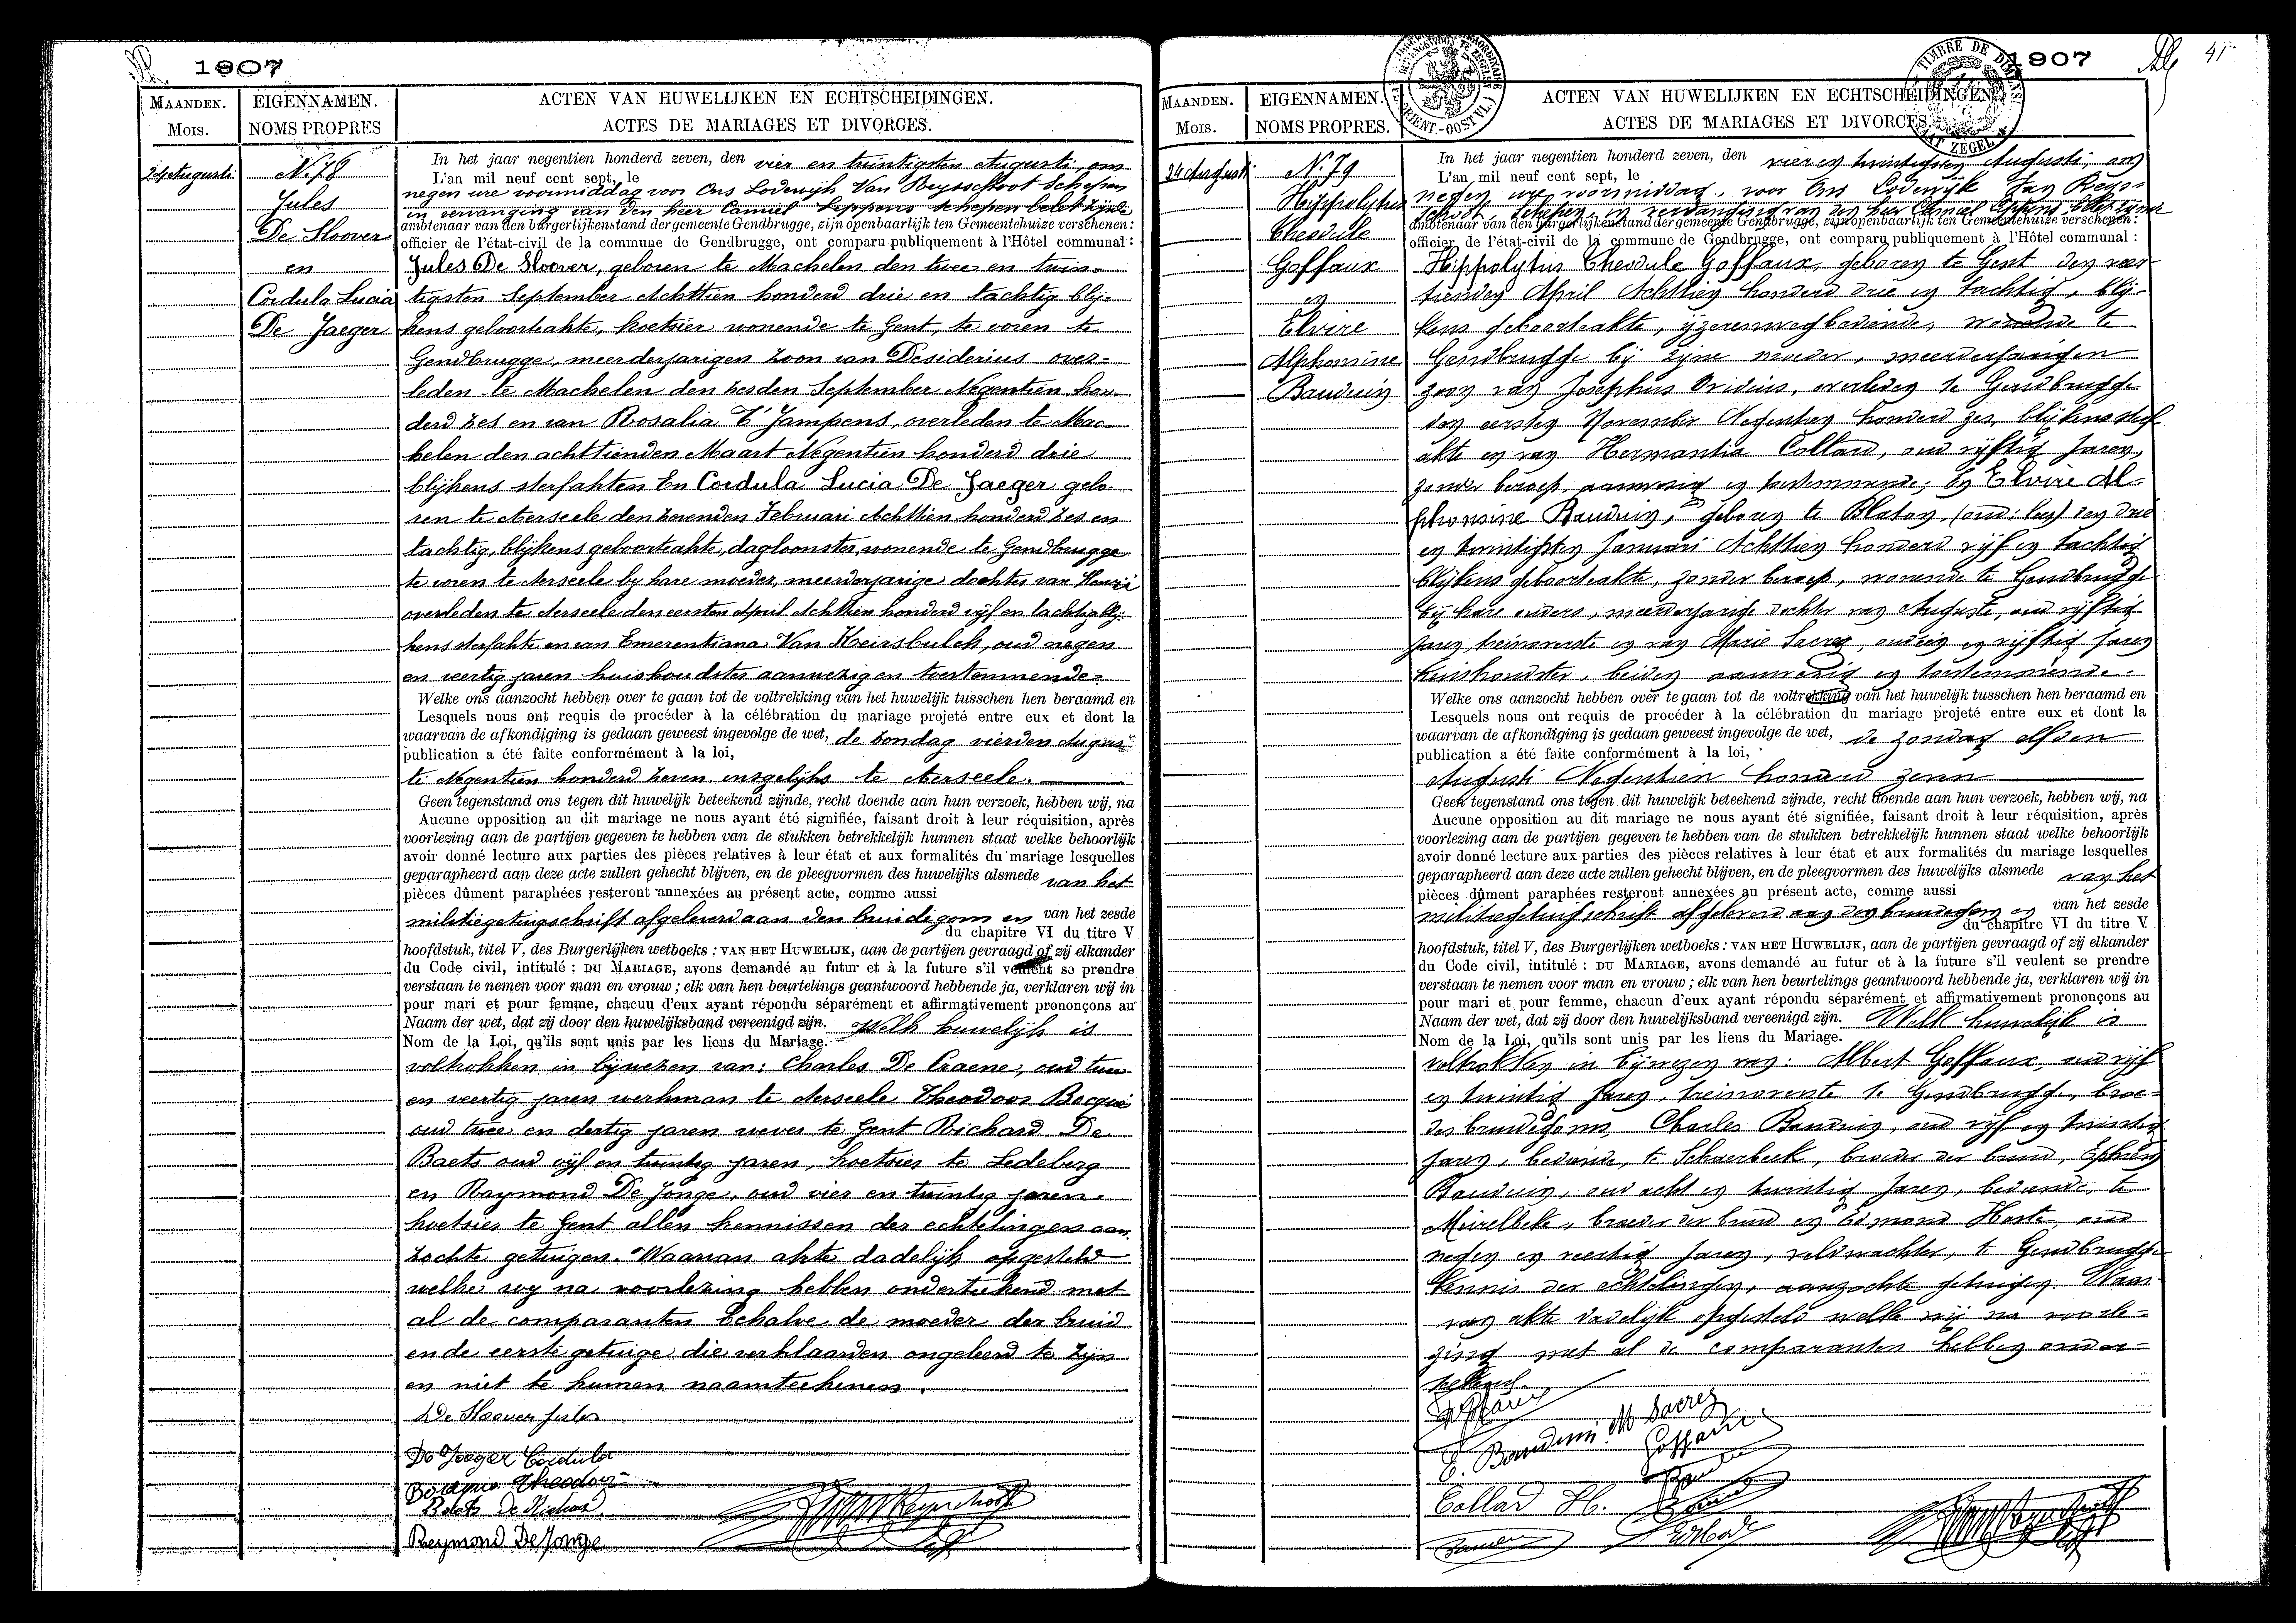 1907
MAANDEN.
MOIS.
EIGENNAMEN.
NOMS PROPRES
ACTEN VAN HUWELIJKEN EN ECHTSCHEIDINGEN.
ACTES DE MARIAGES ET DIVORCES.
24 Augusti
N. 78
Jules
De Sloover
en
Cordula Lucia
De Jaeger
In het jaar negentien honderd zeven, den vier en twintigsten Augusti, om
L'an mil neuf cent sept, le
negen ure voormiddag voor Ons Lodewijk Van Reysschoot Schepen
in vervanging van den heer Camiel Seppens schepen belet zijnde
ambtenaar van den burgerlijkenstand der gemeente Gendbrugge, zijn openbaarlijk ten Gemeentehuize verschenen:
officier de l'état-civil de la commune de Gendbrugge, ont comparu publiquement à l'Hôtel communal:
Jules De Sloover, geboren te Machelen den twee en twin-
tigsten September Achttien honderd drie en tachtig blij-
kens geboorteakte, koetsier wonende te Gent, te voren te
Gendbrugge, meerderjarigen zoon van Desiderius over-
leden te Machelen den zesden September Negentien hon-
derd zes en van Rosalia T'Jampens, overleden te Mac-
helen den achttienden Maart Negentien honderd drie
blijkens sterfakten En Cordula Lucia De Jaeger gebo-
ren te Aerseele den zevenden Februari Achttien honderd zes en
tachtig, blijkens geboorteakte, dagloonster, wonende te Gendbrugge
te voren te Aerseele bij hare moeder, meerderjarige dochter van Henri
overleden te Aerseele den eersten April Achttien honderd vijf en tachtig blij-
kens sterfakte en van Emerentiana Van Keirsbulck, oud negen
en veertig jaren huishoudster aanwezig en toestemmende-
Welke ons aanzocht hebben over te gaan tot de voltrekking van het huwelijk tusschen hen beraamd en
Lesquels nous ont requis de procéder à la célébration du mariage projeté entre eux et dont la
waarvan de afkondiging is gedaan geweest ingevolge de wet, de zondag vierden Augus-
publication a été faite conformément à la loi,
ti Negentien honderd zeven insgelijks te Aerseele.
Geen tegenstand ons tegen dit huwelijk beteekend zijnde, recht doende aan hun verzoek, hebben wij, na
Aucune opposition au dit mariage ne nous ayant été signifiée, faisant droit à leur réquisition, après
voorlezing aan de partijen gegeven te hebben van de stukken betrekkelijk hunnen staat welke behoorlijk
avoir donné lecture aux parties des pièces relatives à leur état et aux formalités du mariage lesquelles
geparapheerd aan deze acte zullen gehecht blijven, en de pleegvormen des huwelijks alsmede van het
pièces dûment paraphées resteront annexées au présent acte, comme aussi
militiegetuigschrift afgeleverd aan den bruidegom en van het zesde
du chapitre VI du titre V
hoofdstuk, titel V, des Burgerlijken wetboeks; VAN HET HUWELIJK, aan de partijen gevraagd of zij elkander
du Code civil, intitulé: DU MARIAGE, avons demandé au futur et à la future s'il veulent se prendre
verstaan te nemen voor man en vrouw; elk van hen beurtelings geantwoord hebbende ja, verklaren wij in
pour mari et pour femme, chacuu d'eux ayant répondu séparément et affirmativement prononçons au
Naam der wet, dat zij door den huwelijksband vereenigd zijn. Welk huwelijk is
Nom de la Loi, qu'ils sont unis par les liens du Mariage.
voltrokken in bijwezen van: Charles De Craene, oud twee
en veertig jaren werkman te Aerseele Theodoor Bocqué
oud twee en dertig jaren wever te Gent Richard De
Baets oud vijf en twintig jaren, koetsier te Ledeberg
en Raymond De Jonge, oud vier en twintig jaren
koetsier te Gent allen kennissen der echtelingen aan-
zochte getuigen. Waarvan akte dadelijk opgesteld
welke wij na voorlezing hebben onderteekend met
al de comparanten behalve de moeder der bruid
en de eerste getuige die verklaarden ongeleerd te zijn
en niet te kunnen naamteekenen.
De Sloover Jules
De Jaeger Cordula
Bocqué Theodoor
Baets De Richard
Reymond De Jonge
1907
41
MAANDEN.
MOIS.
EIGENNAMEN.
NOMS PROPRES.
ACTEN VAN HUWELIJKEN EN ECHTSCHEIDINGEN.
ACTES DE MARIAGES ET DIVORCES.
TIMBRE DE DIMENS
24 Augusti
N. 79
Hippolytus
Theodule
Goffaux
en
Elvire
Alphonsine
Bauduin
In het jaar negentien honderd zeven, den vier en twintigsten Augusti, om
L'an mil neuf cent sept, le
negen ure voormiddag, voor Ons Lodewijk Van Reys-
schoot Schepen in vervanging van den heer Camiel Seppens belet zijnde
ambtenaar van den burgerlijkenstand der gemeente Gendbrugge, zijn openbaarlijk ten Gemeentehuize verschenen:
officier de l'état-civil de la commune de Gendbrugge, ont comparu publiquement à l'Hôtel communal:
Hippolytus Theodule Goffaux, geboren te Gent den veer-
tienden April Achttien honderd drie en tachtig, blij-
kens geboorteakte, ijzerenwegbediende, wonende te
Gendbrugge bij zijne moeder, meerderjarigen
zoon van Josephus Ovidius, overleden te Gendbrugge
den eersten November Negentien honderd zes, blijkens sterf-
akte en van Hermantia Collard, oud vijftig jaren,
zonder beroep, aanwezig en toestemmende, En Elvire Al-
phonsine Bauduin, geboren te Blaton, den drie
en twintigsten Januari Achttien honderd vijf en tachtig
blijkens geboorteakte, zonder beroep, wonende te Gendbrugge
bij hare ouders, meerderjarige dochter van Auguste, oud vijftig
jaren, treinwachter en van Marie Sacrez, oud en vijftig jaren
huishoudster, beiden aanwezig en toestemmende.
Welke ons aanzocht hebben over te gaan tot de voltrekking van het huwelijk tusschen hen beraamd en
Lesquels nous ont requis de procéder à la célébration du mariage projeté entre eux et dont la
waarvan de afkondiging is gedaan geweest ingevolge de wet, de zondag elfden
publication a été faite conformément à la loi,
Augusti Negentien honderd zeven
Geen tegenstand ons tegen dit huwelijk beteekend zijnde, recht doende aan hun verzoek, hebben wij, na
Aucune opposition au dit mariage ne nous ayant été signifiée, faisant droit à leur réquisition, après
voorlezing aan de partijen gegeven te hebben van de stukken betrekkelijk hunnen staat welke behoorlijk
avoir donné lecture aux parties des pièces relatives à leur état et aux formalités du mariage lesquelles
geparapheerd aan deze acte zullen gehecht blijven, en de pleegvormen des huwelijks alsmede van het
pièces dûment paraphées resteront annexées au présent acte, comme aussi
militiegetuigschrift afgeleverd aan den bruidegom en van het zesde
du chapitre VI du titre V.
hoofdstuk, titel V, des Burgerlijken wetboeks: VAN HET HUWELIJK, aan de partijen gevraagd of zij elkander
du Code civil, intitulé: DU MARIAGE, avons demandé au futur et à la future s'il veulent se prendre
verstaan te nemen voor man en vrouw; elk van hen beurtelings geantwoord hebbende ja, verklaren wij in
pour mari et pour femme, chacun d'eux ayant répondu séparément et affirmativement prononçons au
Naam der wet, dat zij door den huwelijksband vereenigd zijn. Welk huwelijk is
Nom de la Loi, qu'ils sont unis par les liens du Mariage.
voltrokken in bijwezen van: Albert Goffaux, oud vijf
en twintig jaren, te Gendbrugge, broe-
der bruidegoms, Charles Bauduin, oud vijf en twintig
jaren, bediende, te Schaerbeek, broeder der bruid, Ephrem
Bauduin, oud acht en twintig jaren, bediende, te
Meirelbeke, broeder der bruid en Edmond Haste, oud
negen en veertig jaren, veldwachter, te Gendbrugge
kennis der echtelingen, aanzochte getuigen. Waar-
van akte dadelijk opgesteld welke wij na voorle-
zing met al de comparanten hebben onder-
teekend.
Goffaux
E. Bauduin M Sacrez
Goffaux
Collard H.